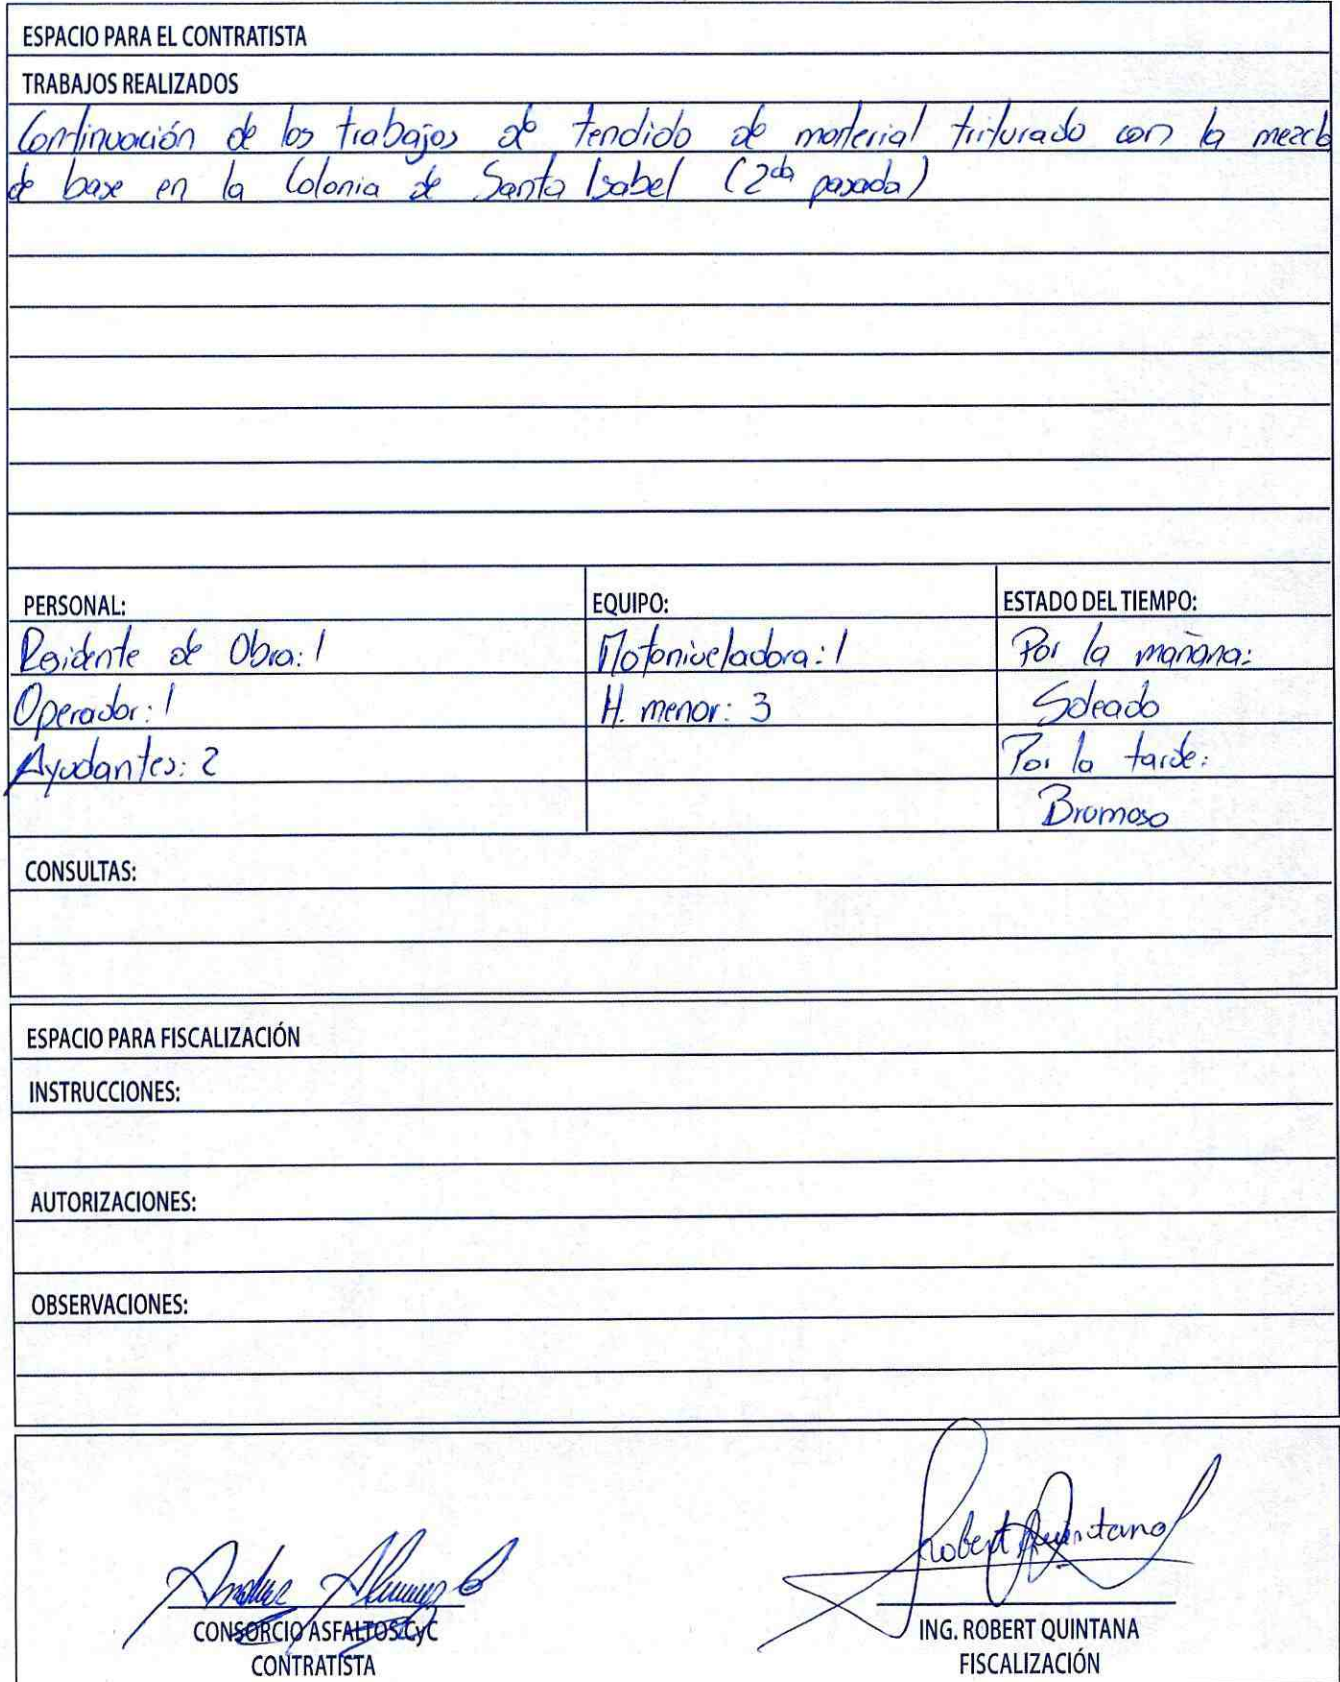 ESPACIO PARA EL CONTRATISTA
TRABAJOS REALIZADOS
Continuación de los trabajos de tendido de material triturado con la mezcla
de base en la Colonia de Santa Isabel (2da pasada)
PERSONAL:
Residente de Obra: 1
Operador: 1
Ayudantes: 2
EQUIPO:
Motoniveladora: 1
H. menor: 3
ESTADO DEL TIEMPO:
Por la mañana:
Soleado
Por la tarde:
Bromoso
CONSULTAS:
ESPACIO PARA FISCALIZACIÓN
INSTRUCCIONES:
AUTORIZACIONES:
OBSERVACIONES:
CONSORCIO ASFALTOS CyC
CONTRATISTA
Robert Quintana
ING. ROBERT QUINTANA
FISCALIZACIÓN